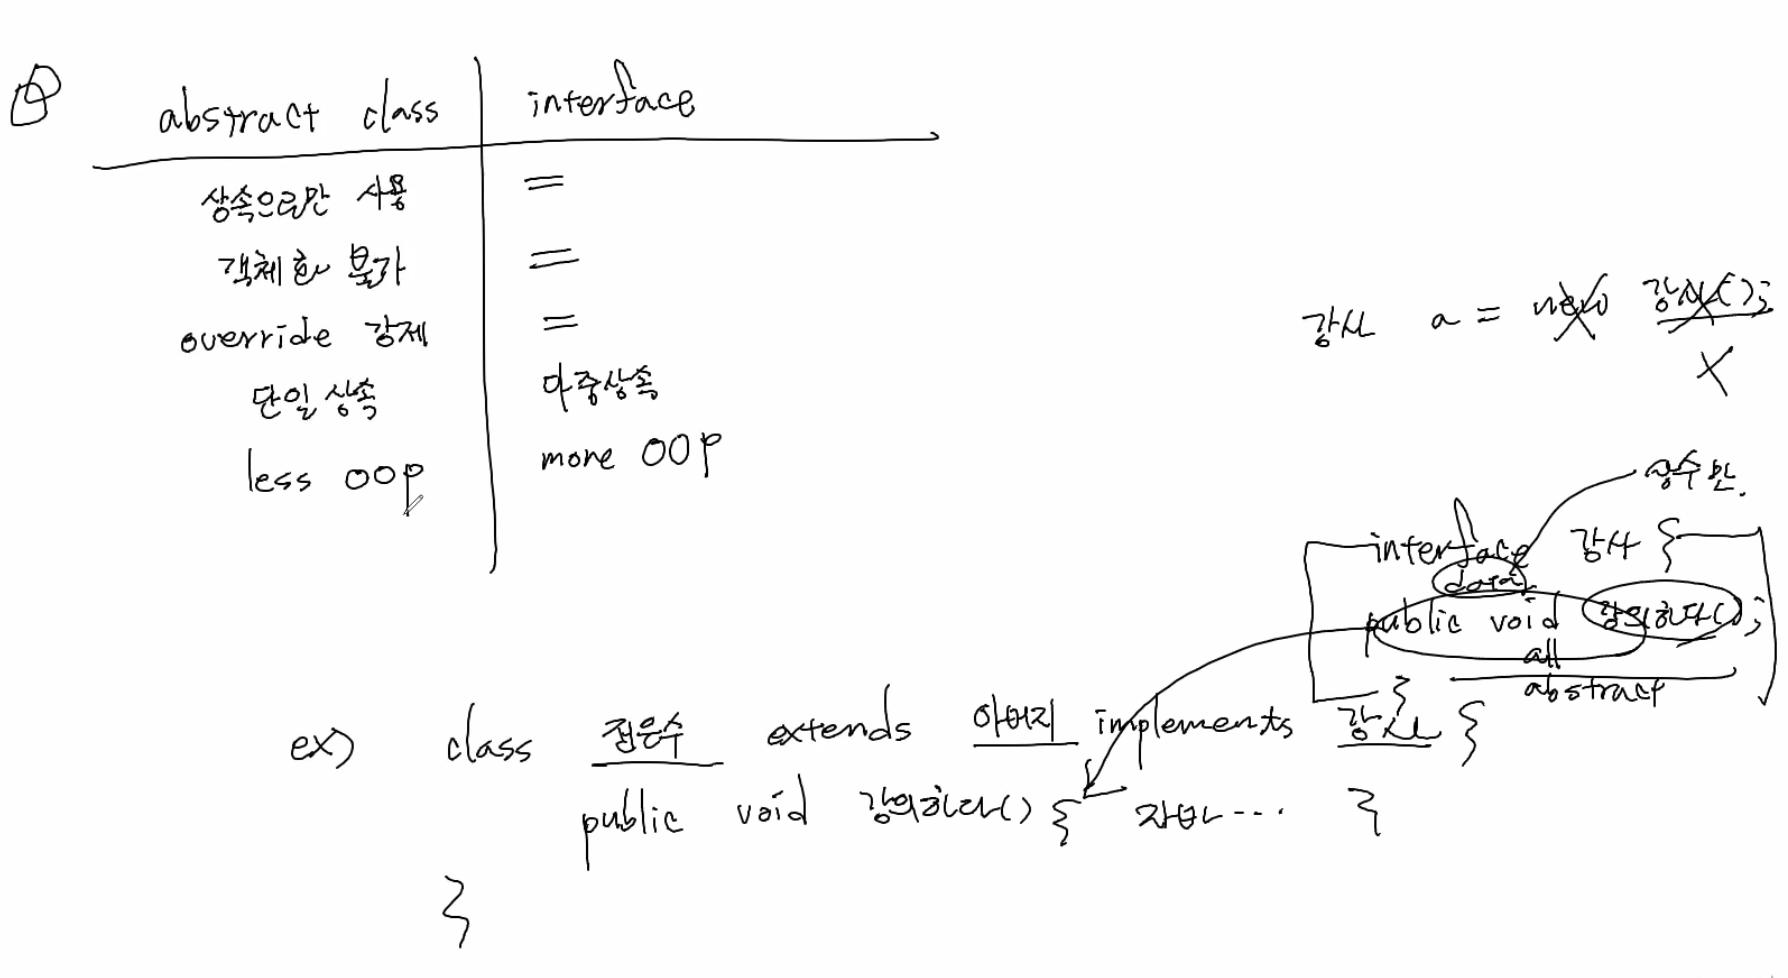 abstract class interface
상속으로만 사용 =
객체화 불가 =
override 강제 =
단일 상속 다중상속
less OOP more OOP
강사 a = new 강사();
X
상수화.
interface 강사 {
data
public void 강의하다();
all
abstract
}
ex) class 접은수 extends 아버지 implements 강사 {
public void 강의하다() { 자바 ... }
}